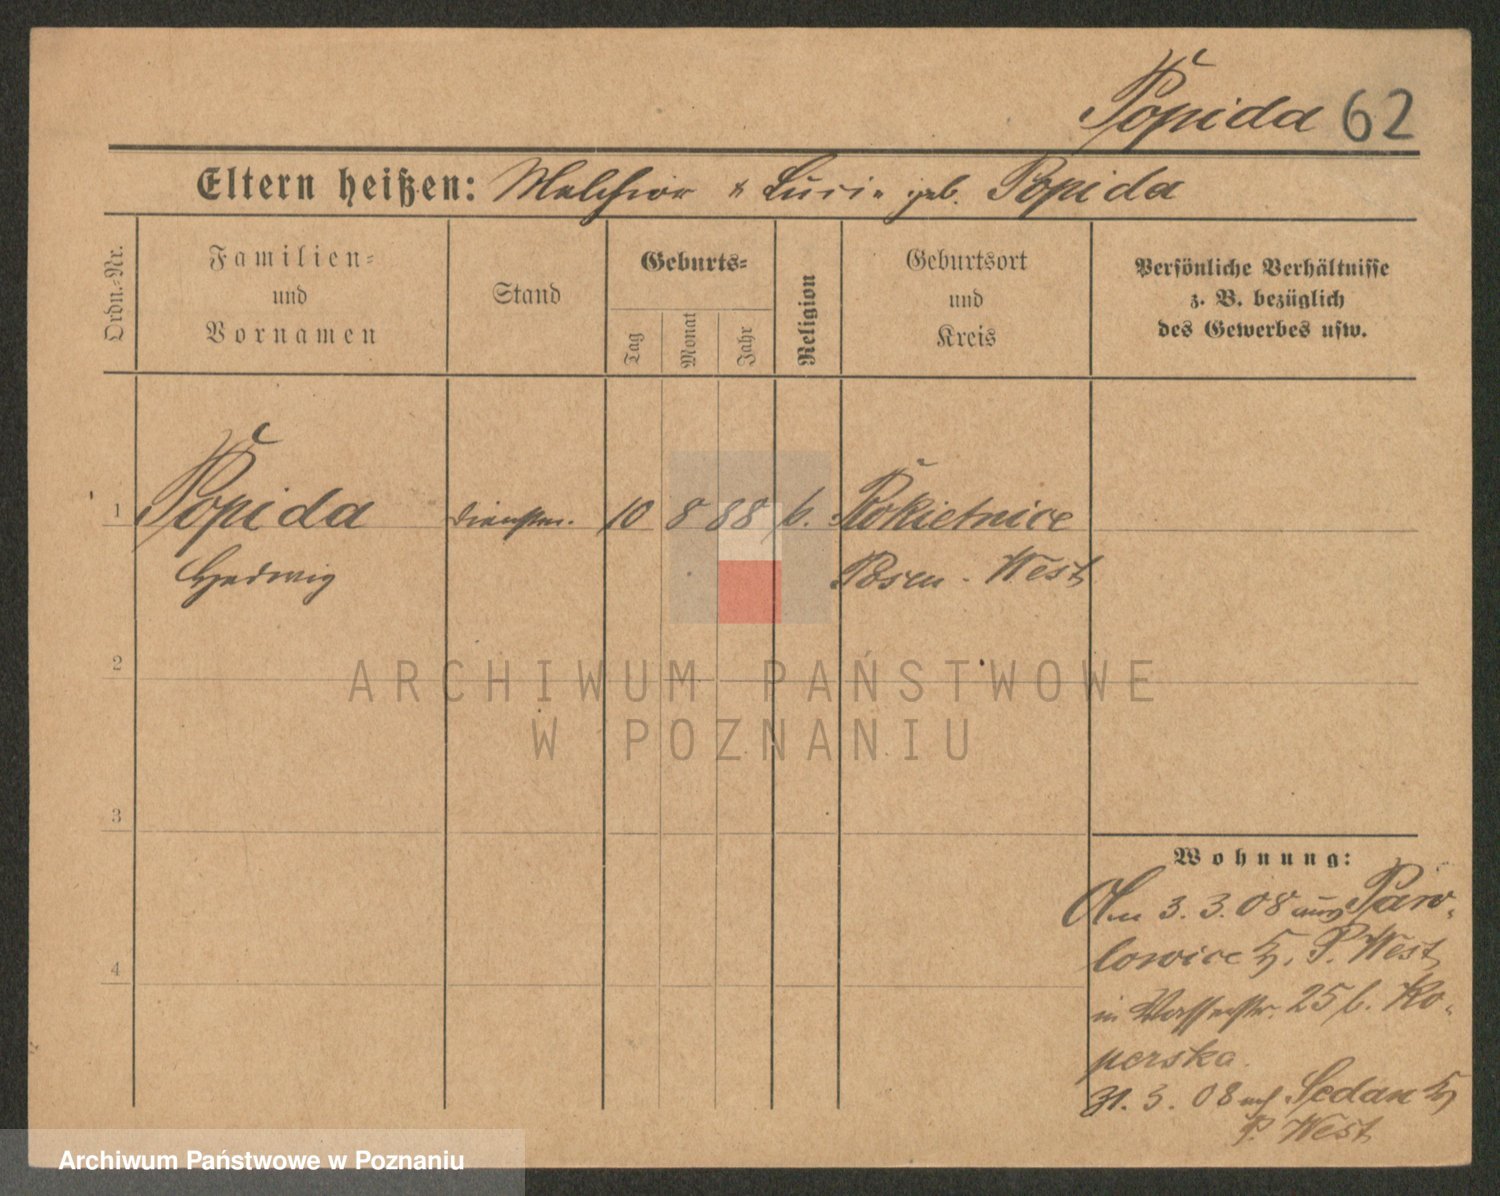 Popida 62
Eltern heißen: Melchior & Luci" geb. Popida
Ordn.-Nr.
Familien-
und
Vornamen
Stand
Geburts-
Tag
Monat
Jahr
Religion
Geburtsort
und
Kreis
Persönliche Verhältnisse
z. B. bezüglich
des Gewerbes usw.
1 Popida 10 8 88 k. Rokietnice
Hedwig Posen - West
2
3
4
ARCHIWUM PAŃSTWOWE
W POZNANIU
Wohnung:
Am 3. 3. 08 aus Paw-
lowice P. West
in Wasserstr. 25 b. Ko-
perska
31. 3. 08 nach Sedan
P. West
Archiwum Państwowe w Poznaniu